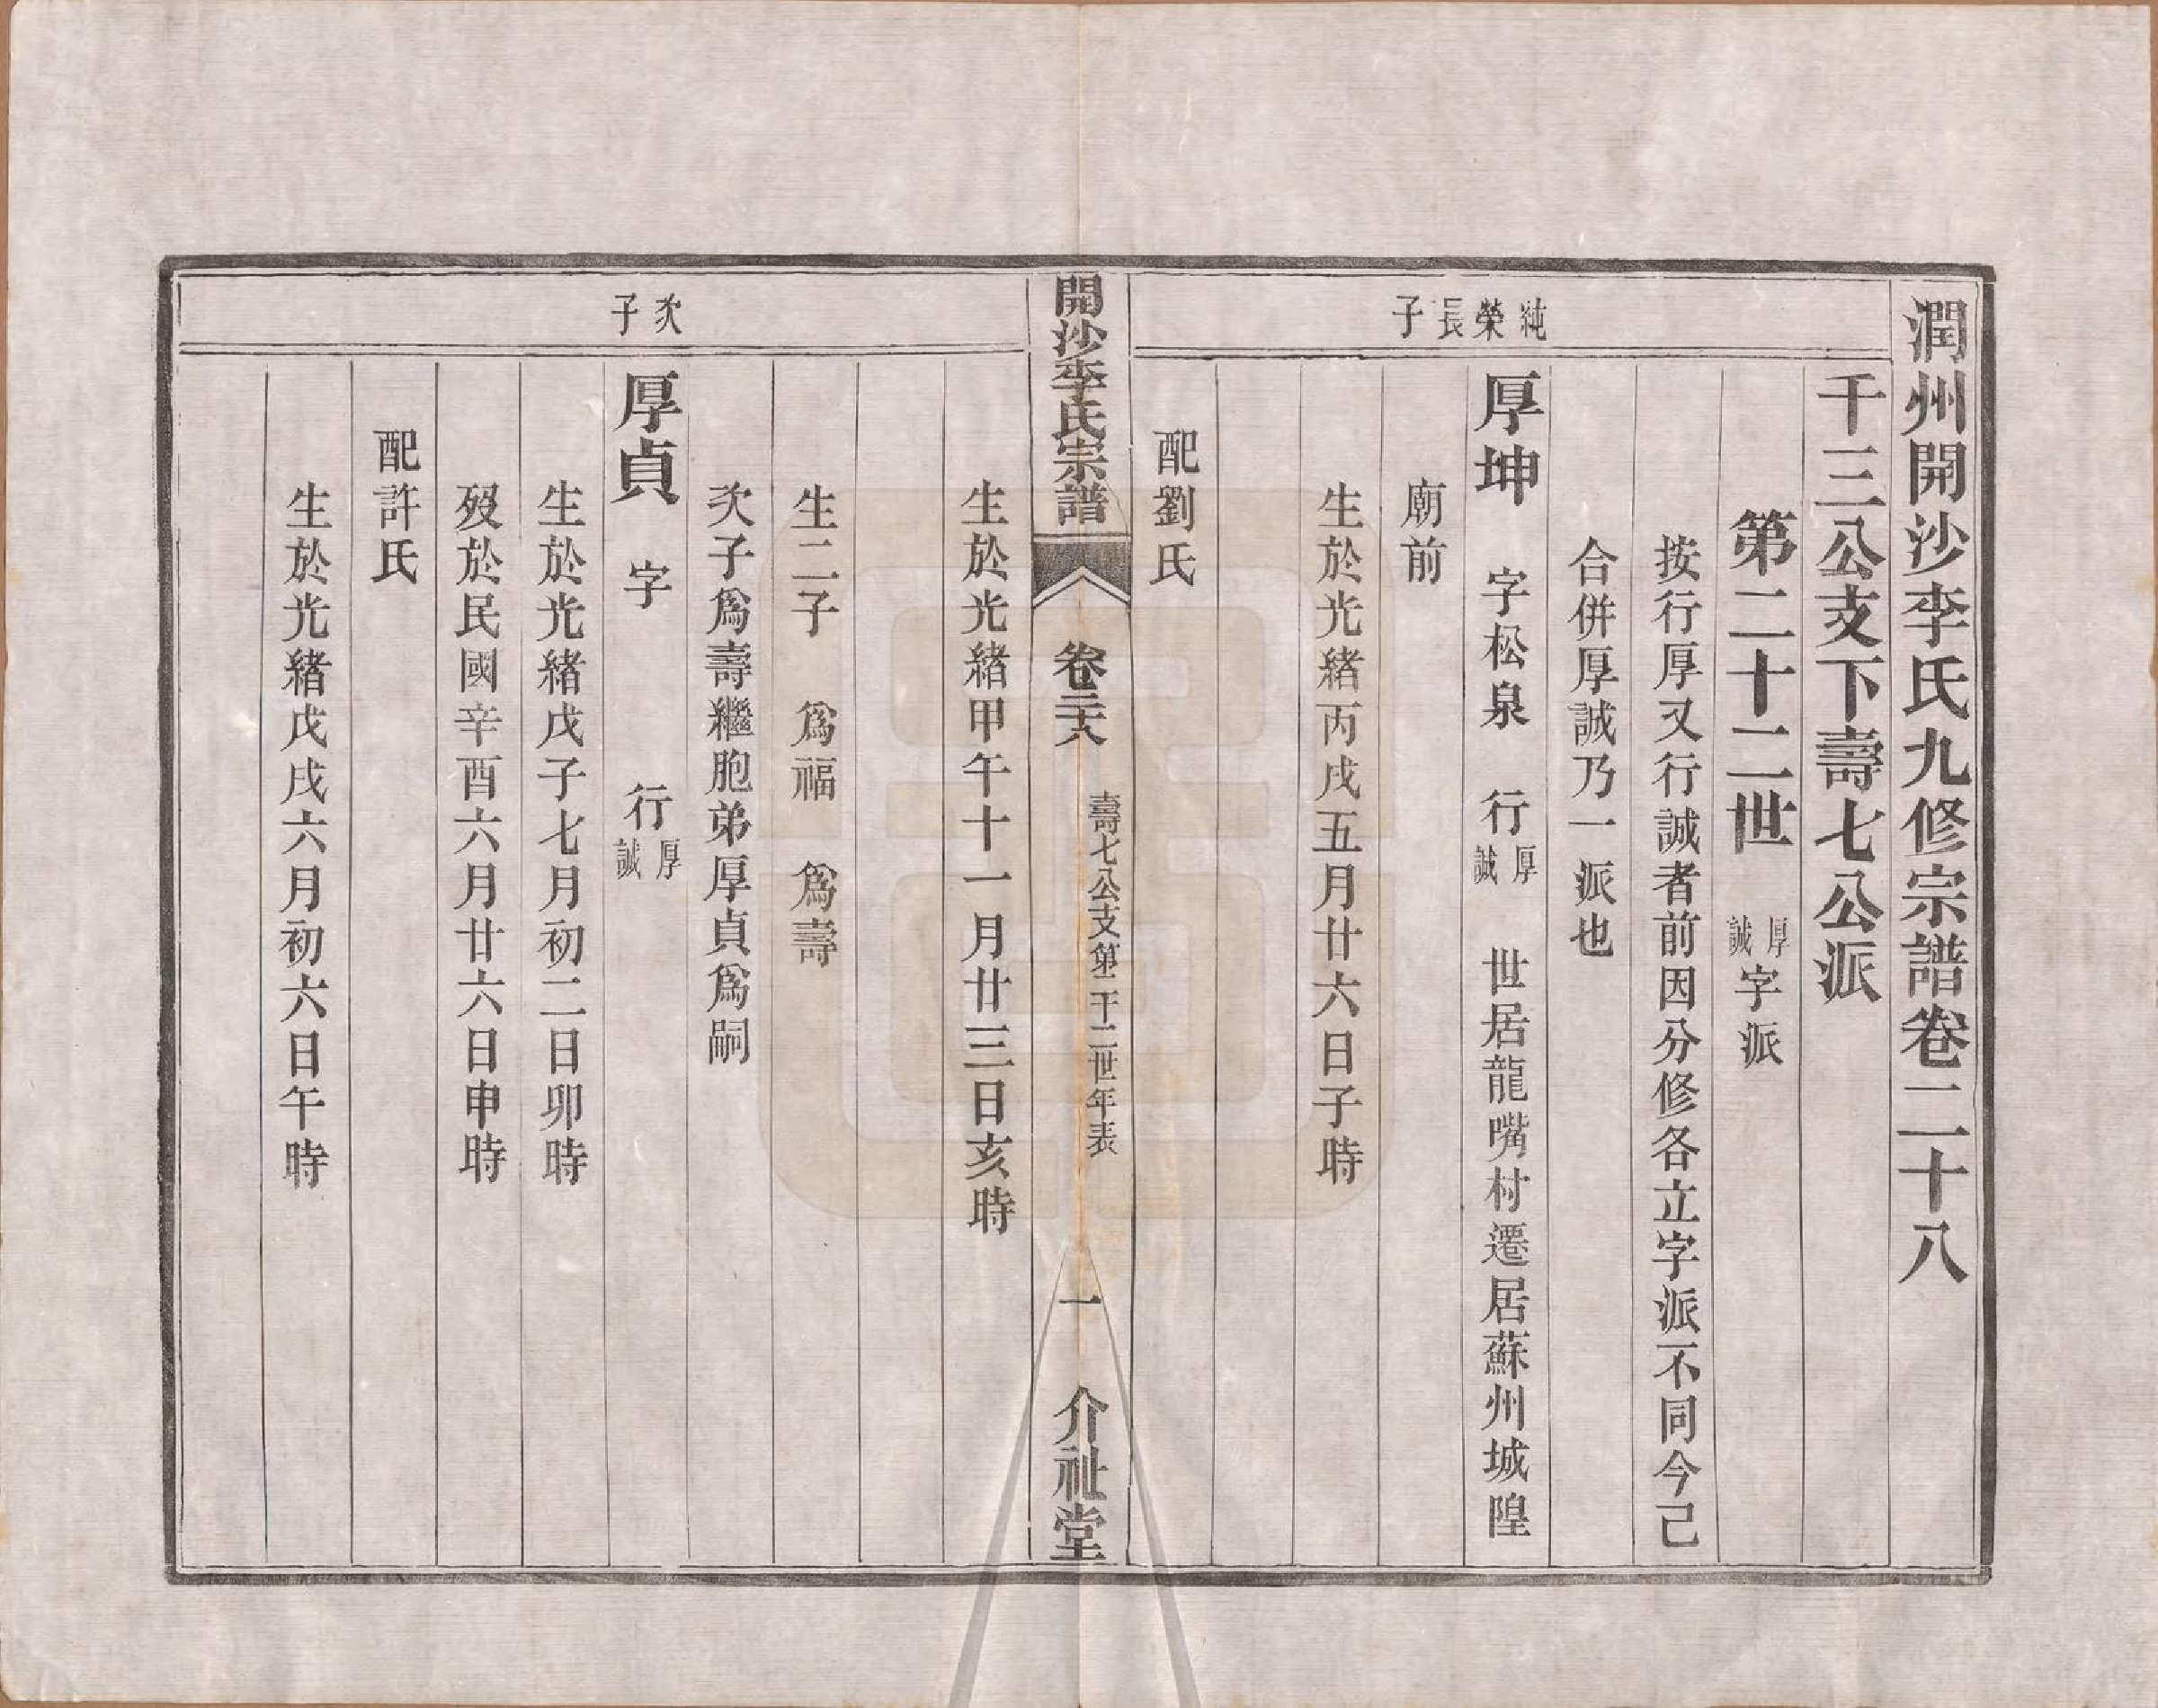 潤州開沙李氏九修宗譜卷二十八
千三公支下壽七公派
第二十二世 厚誠字派
按行厚又行誠者前因分修各立字派不同今己
合併厚誠乃一派也
純榮長子
厚坤 字松泉 行厚誠 世居龍嘴村遷居蘇州城隍
廟前
生於光緒丙戌五月廿六日子時
配劉氏
開沙李氏宗譜 卷二十八 壽七公支第二十二世年表 一 介祉堂
生於光緒甲午十一月廿三日亥時
生二子 爲福 爲壽
次子爲壽繼胞弟厚貞爲嗣
次子
厚貞 字 行厚誠
生於光緒戊子七月初二日卯時
歿於民國辛酉六月廿六日申時
配許氏
生於光緒戊戌六月初六日午時